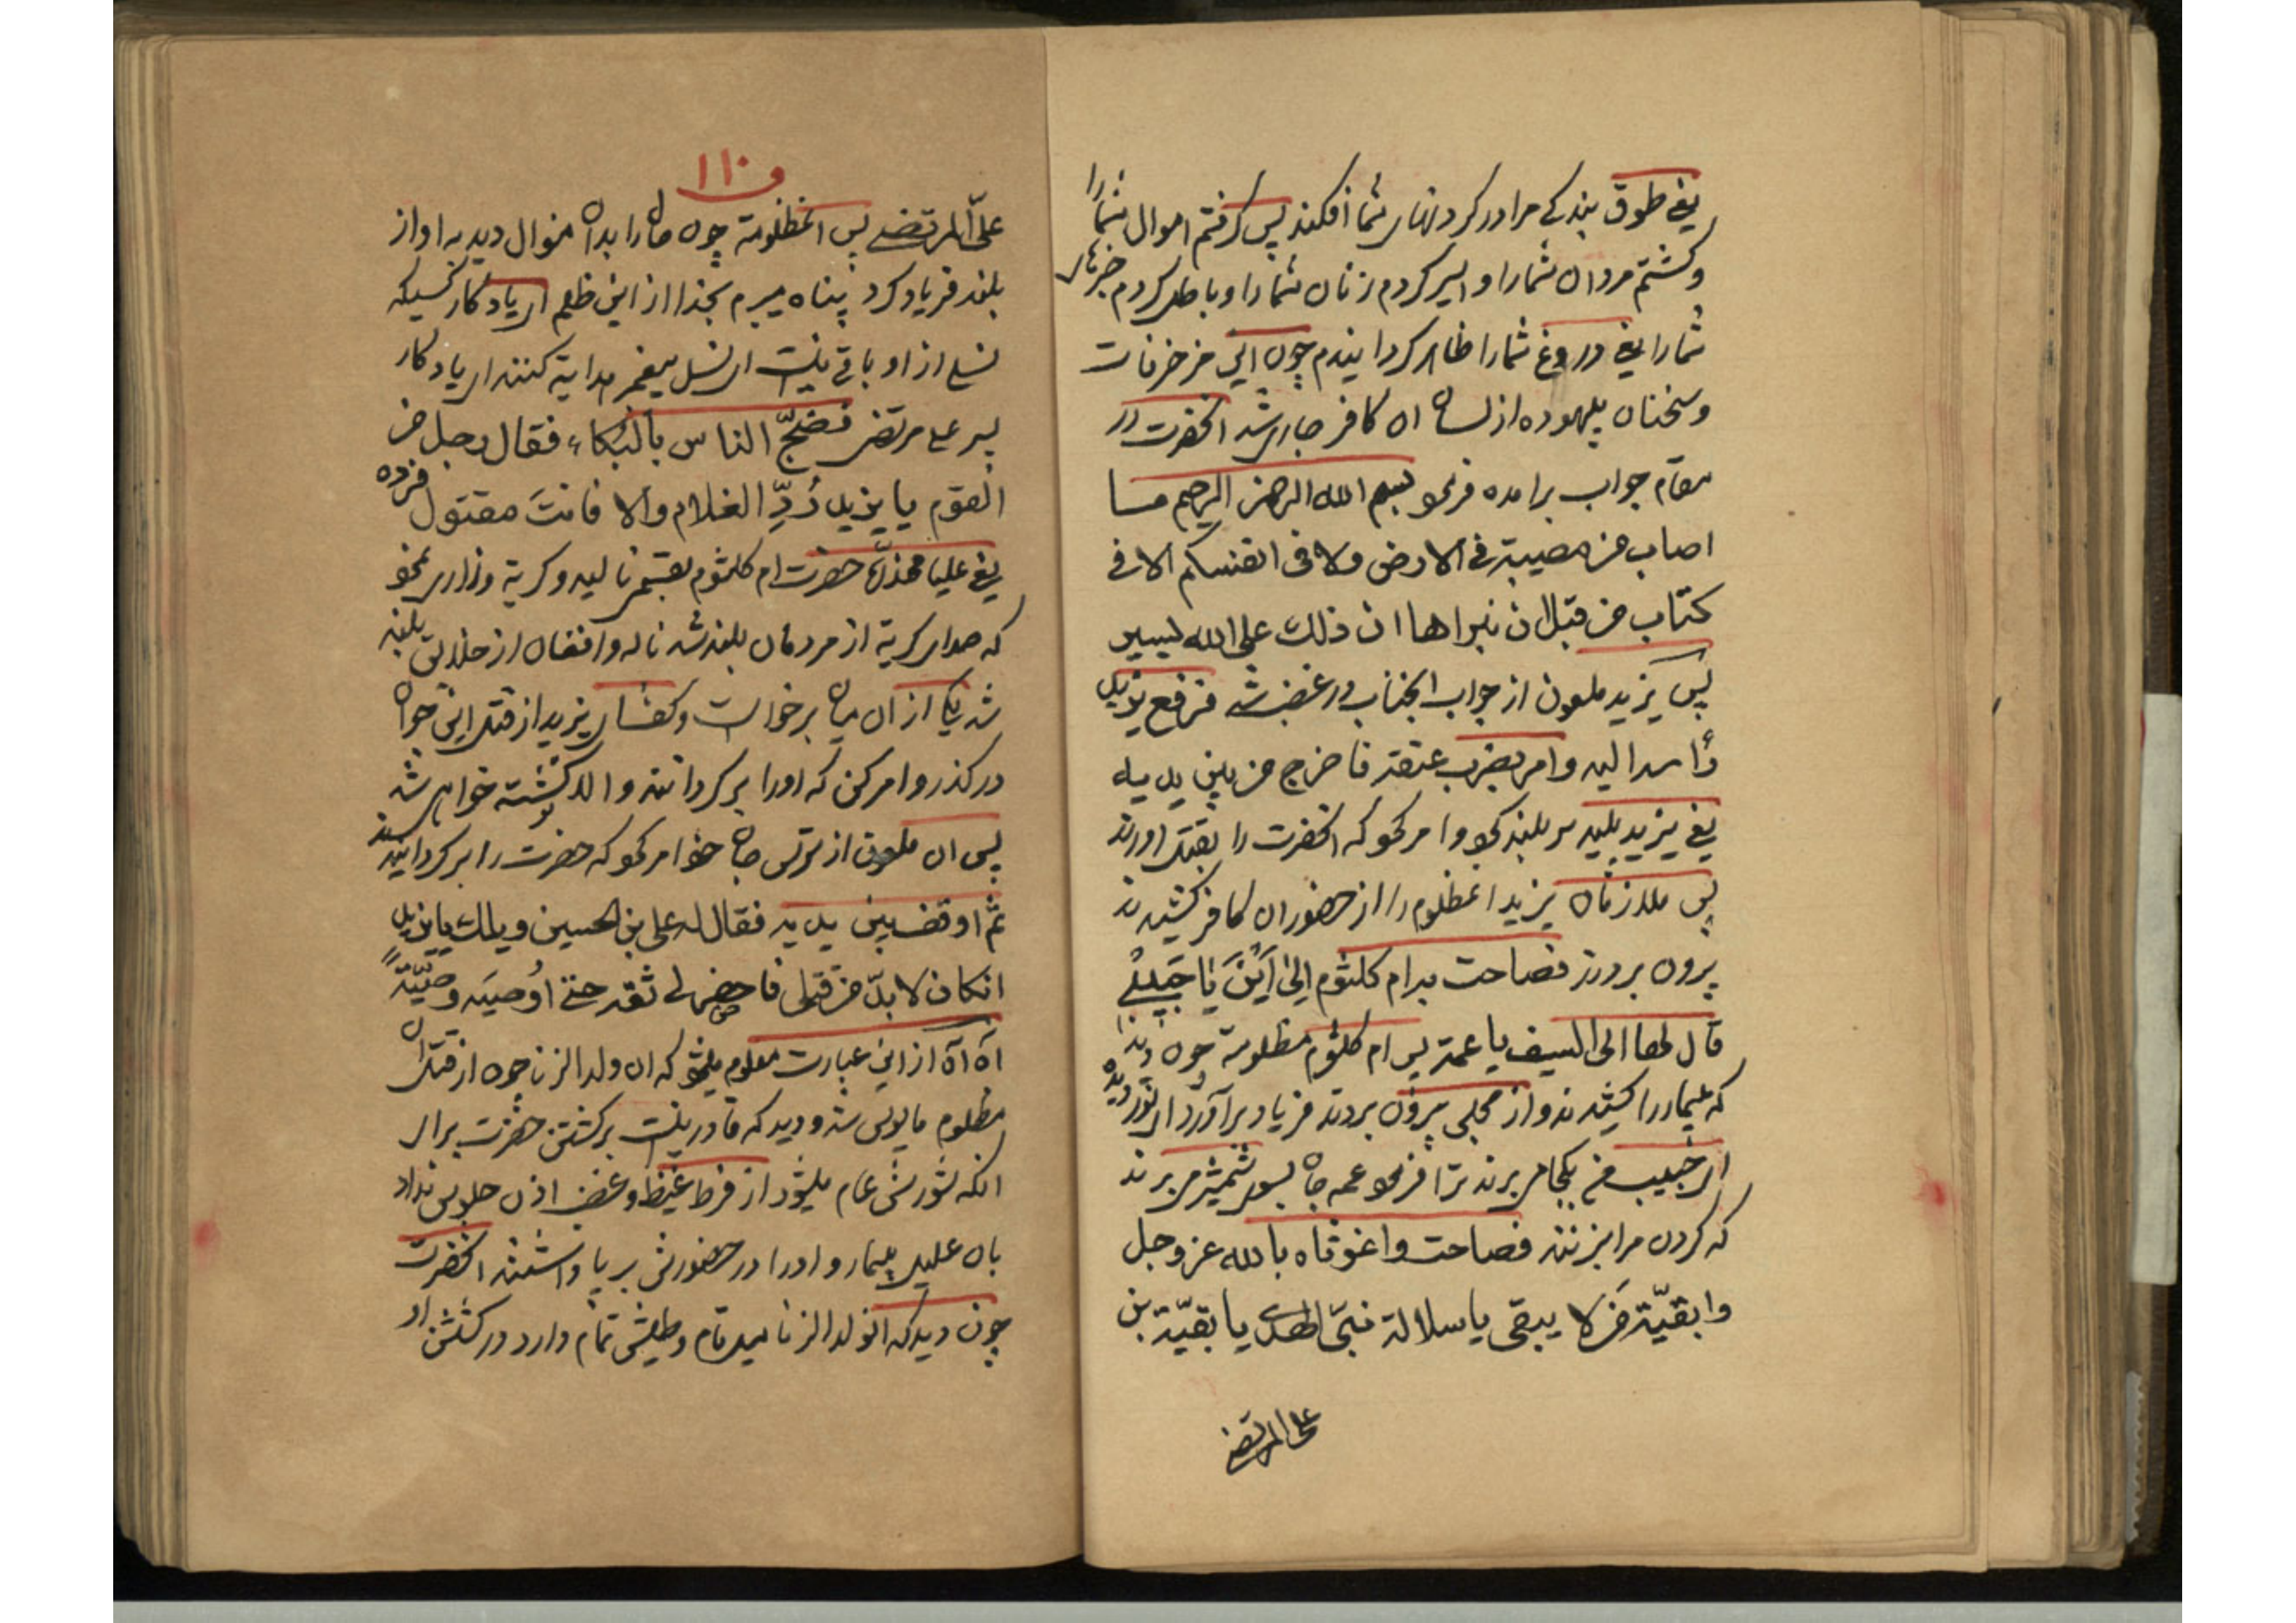 یعنی طوق بندگی مرا در گردنهای شما افکند پس گرفتم اموال شما را
و کشتم مردان شما را و اسیر کردم زنان شما را و باطل کردم خبرهای
شما را یعنی دروغ شما را ظاهر گردانیدم چون این مزخرفات
و سخنان بیهوده از لسان ان کافر جاری شد انحضرت در
مقام جواب برامده فرمود بسم الله الرحمن الرحیم ما
اصاب من مصیبة فی الارض ولا فی انفسکم الا فی
کتاب من قبل ان نبراها ان ذلك علی الله یسیر
پس یزید ملعون از جواب انجناب در غضب شد فرفع یزید
رأسه الیه وامر بضرب عنقه فاخرج من بین یدیه
یعنی یزید پلید سر بلند کرد و امر کرد که انحضرت را بقتل اورند
پس ملازمان یزید انمظلوم را از حضور ان کافر کشیدند
بیرون بردند فصاحت به ام کلثوم الی اَیْنَ یا حَبیبی
قال لها الی السیف یا عمة پس ام کلثوم مظلومه چون دید
که بیمار را کشیدند و از مجلس بیرون بردند فریاد برآورد ای نور دیده
ای حبیب من بکجا میبرند ترا فرمود عمه جان بسوی شمشیر میبرند
که گردن مرا بزنند فصاحت واغوثاه بالله عز وجل
وا بقیّة من لا یبقی یا سلالة نبیّ الهدی یا بقیّة بن
علی المرتضی
۱۱۰
علیّ المرتضی پس انمظلومه چون ما را بدان منوال دید به اواز
بلند فریاد کرد پناه میبرم بخدا از این ظلم ای یادگار کسیکه
نسلی از او باقی نیست ای نسل پیغمبر هدایة کننده ای یادگار
پسر علی مرتضی فضجّ الناس بالبکاء فقال رجل من
القوم یا یزید رُدِّ الغلام والا فانتَ مقتول
یعنی علیا مخدره حضرت ام کلثوم بقسمی نالید و گریه و زاری نمود
که صدای گریه از مردمان بلند شد ناله و افغان از خلایق بلند
شد یکی از ان میان برخواست و گفت ای یزید از قتل این جوان
درگذر و امر کن که اورا برگردانند و الا کشته خواهی شد
پس ان ملعون از ترس جان خود امر کرد که حضرت را برگردانیدند
ثمّ اوقف بین یدیه فقال له علی بن الحسین ویلك یا یزید
انکان لا بدّ من قتلی فاحضر لی ثقه حتی اُوصیَه وصیّةً
آه آه از این عبارت معلوم میشود که ان ولد الزنا چون از قتل ان
مظلوم مایوس شد و دید که قادر نیست بر کشتن حضرت برای
انکه شورش عام میشود از فرط غیظ و غضب اذن جلوس نداد
بان علیل بیمار و اورا در حضورش برپا داشتند انحضرت
چون دید که انولد الزنا میل تام و طیش تمام دارد در کشتن او